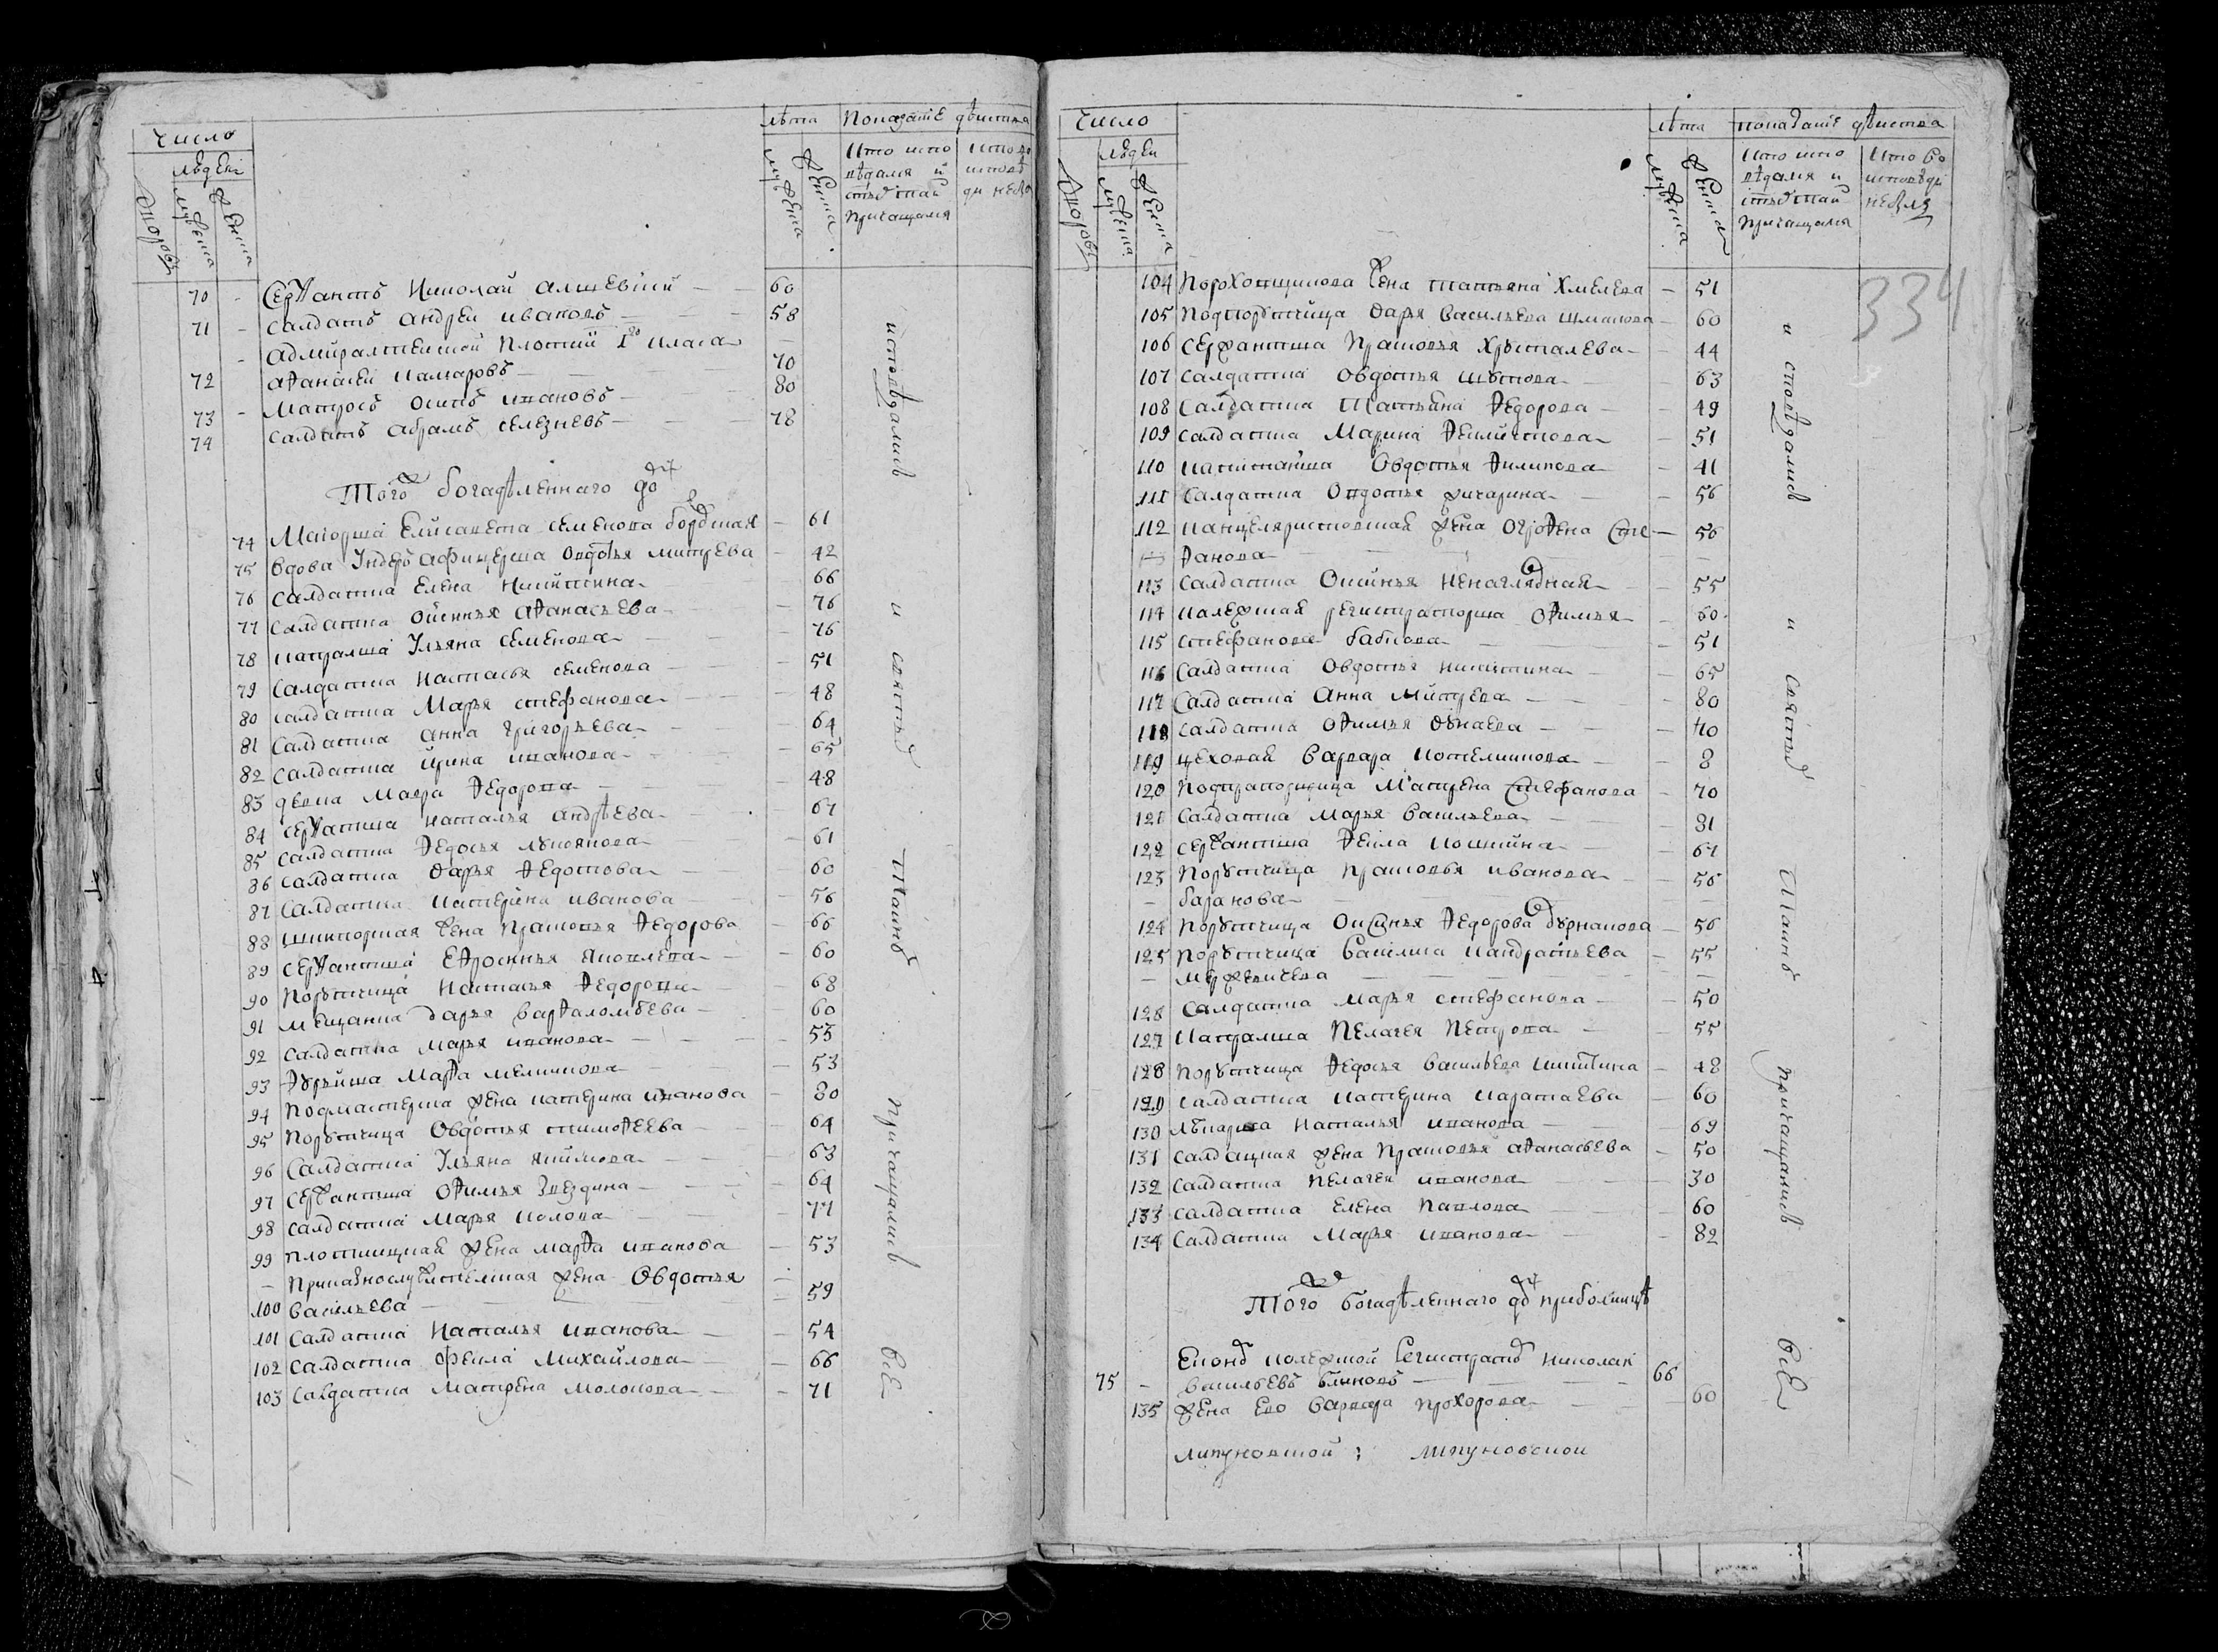 Число
людеи
Дворовъ
мужеска
женска
лѣта
мужеска
женска
Показание дѣиства
Кто испо
вѣдался и
святыхъ таи
причащался
70 - Сержантъ Николай Алшевский - 60
71 - Салдатъ Андреи Ивановъ - 58
- Адмиралтеискои плотник 1го класа -
72 Афанасеи Камаровъ - 70
73 - Матросъ Осипъ Ивановъ - 80
74 Салдатъ Абрамъ Селезневъ - 78
Того ж богадѣленнаго дом
74 Маіорша Елисавета Семенова Борская - 61
75 Вдова Ундеръ афицерша Овдотья Митрева - 42
76 Салдатка Елена Никитина - 66
77 Салдатка Оксинья Афанасьева - 76
78 Капралша Ульяна Семенова - 76
79 Салдатка Настасья Семенова - 51
80 Салдатка Марья Стефанова - 48
81 Салдатка Анна Григорьева - 64
82 Салдатка Ирина Иванова - 65
83 девка Мавра Федорова - 48
84 Сержантша Наталья Андрѣева - 67
85 Салдатка Федосья Лукоянова - 61
86 Салдатка Дарья Федотова - 60
87 Салдатка Катерина Иванова - 56
88 Шкиперская жена Прасковья Федорова - 66
89 Сержантша Ефросинья Яковлева - 60
90 Порутчица Настасья Федорова - 68
91 Мещанка Дарья Варфаломѣева - 60
92 Салдатка Марья Иванова - 53
93 Фурьйша Марфа Меликова - 53
94 Подмастерья жена Катерина Иванова - 80
95 Порутчица Овдотья Тимофеева - 64
96 Салдатка Ульяна Якимова - 63
97 Сержантша Офимья Звездина - 64
98 Салдатка Марья Колова - 77
99 Плотницкая жена Марфа Иванова - 53
- Приказнослужителская жена Овдотья -
100 Васильева - 59
101 Салдатка Наталья Иванова - 54
102 Салдатка Фекла Михайлова - 66
103 Салдатка Матрена Молокова - 71
исповѣдались
и
святыхъ
Таинъ
причащались
всѣ
Число
людеи
Дворовъ
мужеска
женска
лѣта
мужеска
женска
показание дѣиства
Кто испо
вѣдался и
святыхъ таи
причащался
Кто со
исповѣди
невзя
334
104 Пороховщикова жена Татьяна Хмелева - 51
105 Подпорутчица Дарья Васильева Шмакова - 60
106 Сержантша Прасковья Хрусталева - 44
107 Салдатка Овдотья Шутова - 63
108 Салдатка Татьяна Федорова - 49
109 Салдатка Марина Феилистова - 51
110 Капитанша Овдотья Филипова - 41
111 Салдатка Овдотья Жихарина - 56
112 Канцеляристовская жена Огрофена Сте - 56
фанова -
113 Салдатка Оксинья Ненаглядная - 55
114 Калежская регистраторша Офимья - 60
115 Стефанова Бабкова - 51
116 Салдатка Овдотья Никитина - 65
117 Салдатка Анна Митрева - 80
118 Салдатка Офимья Дунаева - 40
119 Цеховая Варвара Котелникова - 8
120 Подпрапорщица Матрена Стефанова - 70
121 Салдатка Марья Васильева - 81
122 Сержантша Фекла Кошкина - 67
123 Порутчица Прасковья Иванова - 56
- Баранова -
124 Порутчица Оксинья Федорова Бурнакова - 56
125 Порутчица Василиса Кандратьева - 55
- Мержевичева -
128 Салдатка Марья Стефанова - 50
127 Капралша Пелагея Петрова - 55
128 Порутчица Федосья Васильева Никитина - 48
129 Салдатка Катерина Каратаева - 60
130 Лѣкарша Наталья Иванова - 69
131 Салдацкая жена Прасковья Афанасьева - 50
132 Салдатка Пелагея Иванова - 30
133 Салдатка Елена Павлова - 60
134 Салдатка Марья Иванова - 82
Того ж богадѣленнаго дом при болницѣ
Економ колежской регистратор Николай
75 - Васильевъ Блиновъ - 66
135 Жена Ево Варвара Прохорова - 60
Липуновской : Липуновской
исповѣдались
и
святыхъ
Таинъ
причащались
всѣ